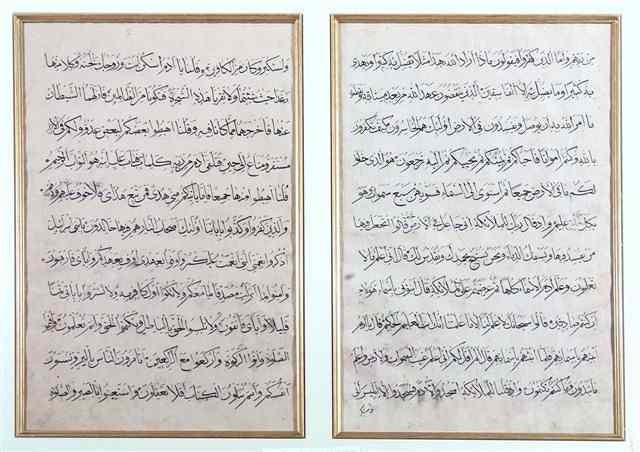 من ربهم واما الذين كفروا فيقولون ماذا اراد الله بهذا مثلا يضل به كثيرا ويهدي
به كثيرا وما يضل به الا الفاسقين الذين ينقضون عهد الله من بعد ميثاقه ويقطعون
ما امر الله به ان يوصل ويفسدون في الارض اولئك هم الخاسرون كيف تكفرون
بالله وكنتم امواتا فاحياكم ثم يميتكم ثم يحييكم ثم اليه ترجعون هو الذي خلق
لكم ما في الارض جميعا ثم استوى الى السماء فسويهن سبع سموات وهو
بكل شيء عليم واذ قال ربك للملائكة اني جاعل في الارض خليفة قالوا اتجعل فيها
من يفسد فيها ويسفك الدماء ونحن نسبح بحمدك ونقدس لك قال اني اعلم ما لا
تعلمون وعلم ادم الاسماء كلها ثم عرضهم على الملائكة فقال انبئوني باسماء هؤلاء
ان كنتم صادقين قالوا سبحانك لا علم لنا الا ما علمتنا انك انت العليم الحكيم قال يا ادم
انبئهم باسمائهم فلما انباهم باسمائهم قال الم اقل لكم اني اعلم غيب السموات والارض واعلم
ما تبدون وما كنتم تكتمون واذ قلنا للملائكة اسجدوا لادم فسجدوا الا ابليس ابى
واستكبر وكان من الكافرين وقلنا يا ادم اسكن انت وزوجك الجنة وكلا منها
رغدا حيث شئتما ولا تقربا هذه الشجرة فتكونا من الظالمين فازلهما الشيطان
عنها فاخرجهما مما كانا فيه وقلنا اهبطوا بعضكم لبعض عدو ولكم في الارض
مستقر ومتاع الى حين فتلقى ادم من ربه كلمات فتاب عليه انه هو التواب الرحيم
قلنا اهبطوا منها جميعا فاما ياتينكم مني هدى فمن تبع هداي فلا خوف عليهم ولا هم يحزنون
والذين كفروا وكذبوا باياتنا اولئك اصحاب النار هم فيها خالدون يا بني اسرائيل
اذكروا نعمتي التي انعمت عليكم واوفوا بعهدي اوف بعهدكم واياي فارهبون
وامنوا بما انزلت مصدقا لما معكم ولا تكونوا اول كافر به ولا تشتروا باياتي ثمنا
قليلا واياي فاتقون ولا تلبسوا الحق بالباطل وتكتموا الحق وانتم تعلمون واقيموا
الصلوة واتوا الزكوة واركعوا مع الراكعين اتامرون الناس بالبر وتنسون
انفسكم وانتم تتلون الكتاب افلا تعقلون واستعينوا بالصبر والصلوة